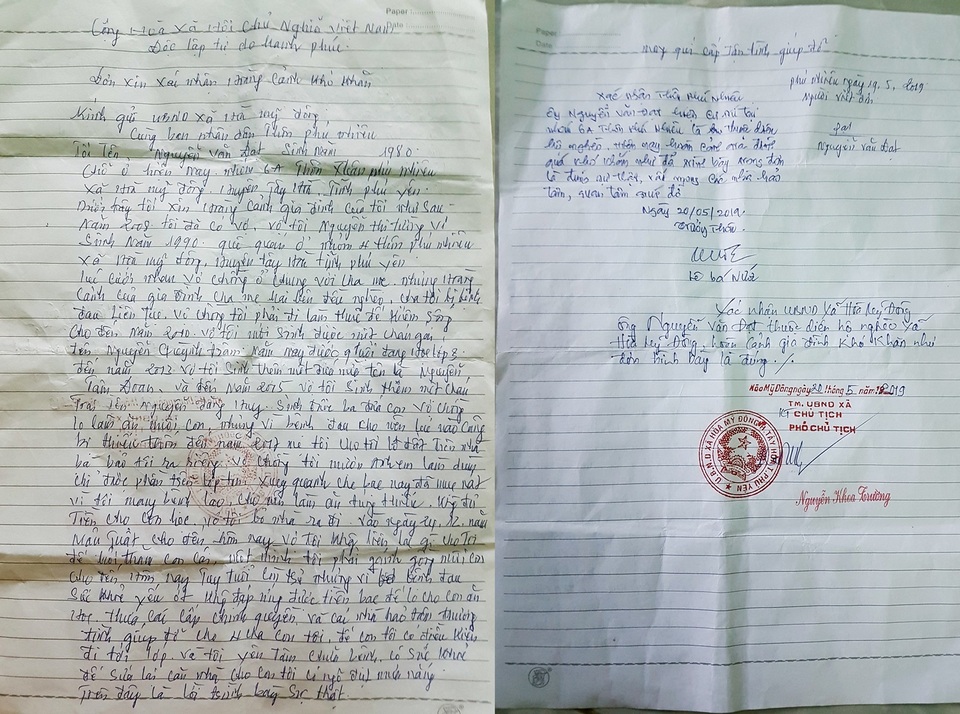 Paper :
Date :
Cộng Hòa Xã Hội Chủ Nghĩa Việt Nam
Độc lập tự do hạnh phúc
Đơn xin xác nhận trạng cảnh khó khăn
Kính gửi UBND xã Hòa mỹ đông
Cùng ban nhân dân thôn phú nhiêu
Tôi tên Nguyễn Văn Đạt Sinh Năm 1980.
Chỗ ở hiện nay nhóm 6A Thôn phú nhiêu
Xã Hòa mỹ đông, huyện Tây Hòa, Tỉnh phú yên.
tôi xin trạng cảnh gia đình của tôi như sau
Năm 2008 tôi đã có vợ, vợ tôi Nguyễn thị tường vi
Sinh Năm 1990. quê quán ở nhóm thôn phú nhiêu
Xã Hòa mỹ đông, huyện tây Hòa tỉnh phú yên.
lúc cưới nhau vợ chồng ở chung với cha mẹ nhưng
cảnh của gia đình cha mẹ hai bên đều nghèo, cha tôi bị bệnh
đau liên tục. vợ chồng tôi phải đi làm thuê để kiếm sống
cho đến năm 2010. vợ tôi mới sinh được một cháu gái
tên Nguyễn Quỳnh trâm năm nay được 9 tuổi đang học lớp 3.
đến năm 2013 vợ tôi sinh thêm một đứa nữa tên là Nguyễn
Tâm Đoan. và đến năm 2015 vợ tôi sinh thêm một cháu
Trai tên nguyễn đăng Huy. Sinh được ba đứa con vợ chồng
lo làm ăn nuôi con, nhưng vì bệnh đau cho nên lúc nào cũng
bị thiếu thốn đến năm 2017
bà bảo tôi ra riêng vợ chồng tôi mượn làm
chỉ được phần xung quanh che bạc nay đã mục nát
vì tôi mang bệnh lao, cho nên làm ăn Không đủ
Tiền cho con học, vợ tôi bỏ nhà ra đi vào ngày năm
Mậu Tuất cho đến hôm nay vợ tôi không liên lạc gì cho tôi
để nuôi, thăm con cái một mình tôi phải gánh gồng nuôi con
cho đến hôm nay Tuy tuổi còn trẻ nhưng vì bệnh đau
Sức khỏe yếu ớt không đáp ứng được tiền bạc để lo cho con ăn
học. Thưa, các cấp chính quyền và các nhà hảo tâm thương
tình giúp đỡ cho 4 cha con tôi, để con tôi có điều kiện
đi tới lớp và tôi yên tâm chữa bệnh. có sức khỏe
để sửa lại căn nhà cho con tôi có ngõ đụt mưa nắng
Trên đây là lời trình bày Sự thật
Date
mong quí cấp tận tình giúp đỡ
phú nhiêu ngày 19. 5. 2019
Người viết đơn
Đạt
Nguyễn Văn Đạt
Xác nhận Thôn Phú Nhiêu
Ông Nguyễn Văn Đạt hiện cư trú tại
nhóm 6A Thôn Phú Nhiêu là hộ thuộc diện
hộ nghèo. Hiện nay hoàn cảnh gia đình
quá khó khăn như đã trình bày trong đơn
là đúng sự thật, rất mong các nhà hảo
tâm, quan tâm giúp đỡ
Ngày 20/05/2019.
Trưởng Thôn
Lê Bá
Xác nhận UBND xã Hòa Mỹ Đông
Ông Nguyễn Văn Đạt thuộc diện hộ nghèo xã
Hòa Mỹ Đông, hoàn cảnh gia đình khó khăn như
đơn trình bày là đúng ./.
Hòa Mỹ Đông ngày 20 tháng 5 năm 2019
TM. UBND XÃ
KT CHỦ TỊCH
PHÓ CHỦ TỊCH
U.B.N.D XÃ HÒA MỸ ĐÔNG H. TÂY HÒA T. PHÚ YÊN
Nguyễn Khoa Trường